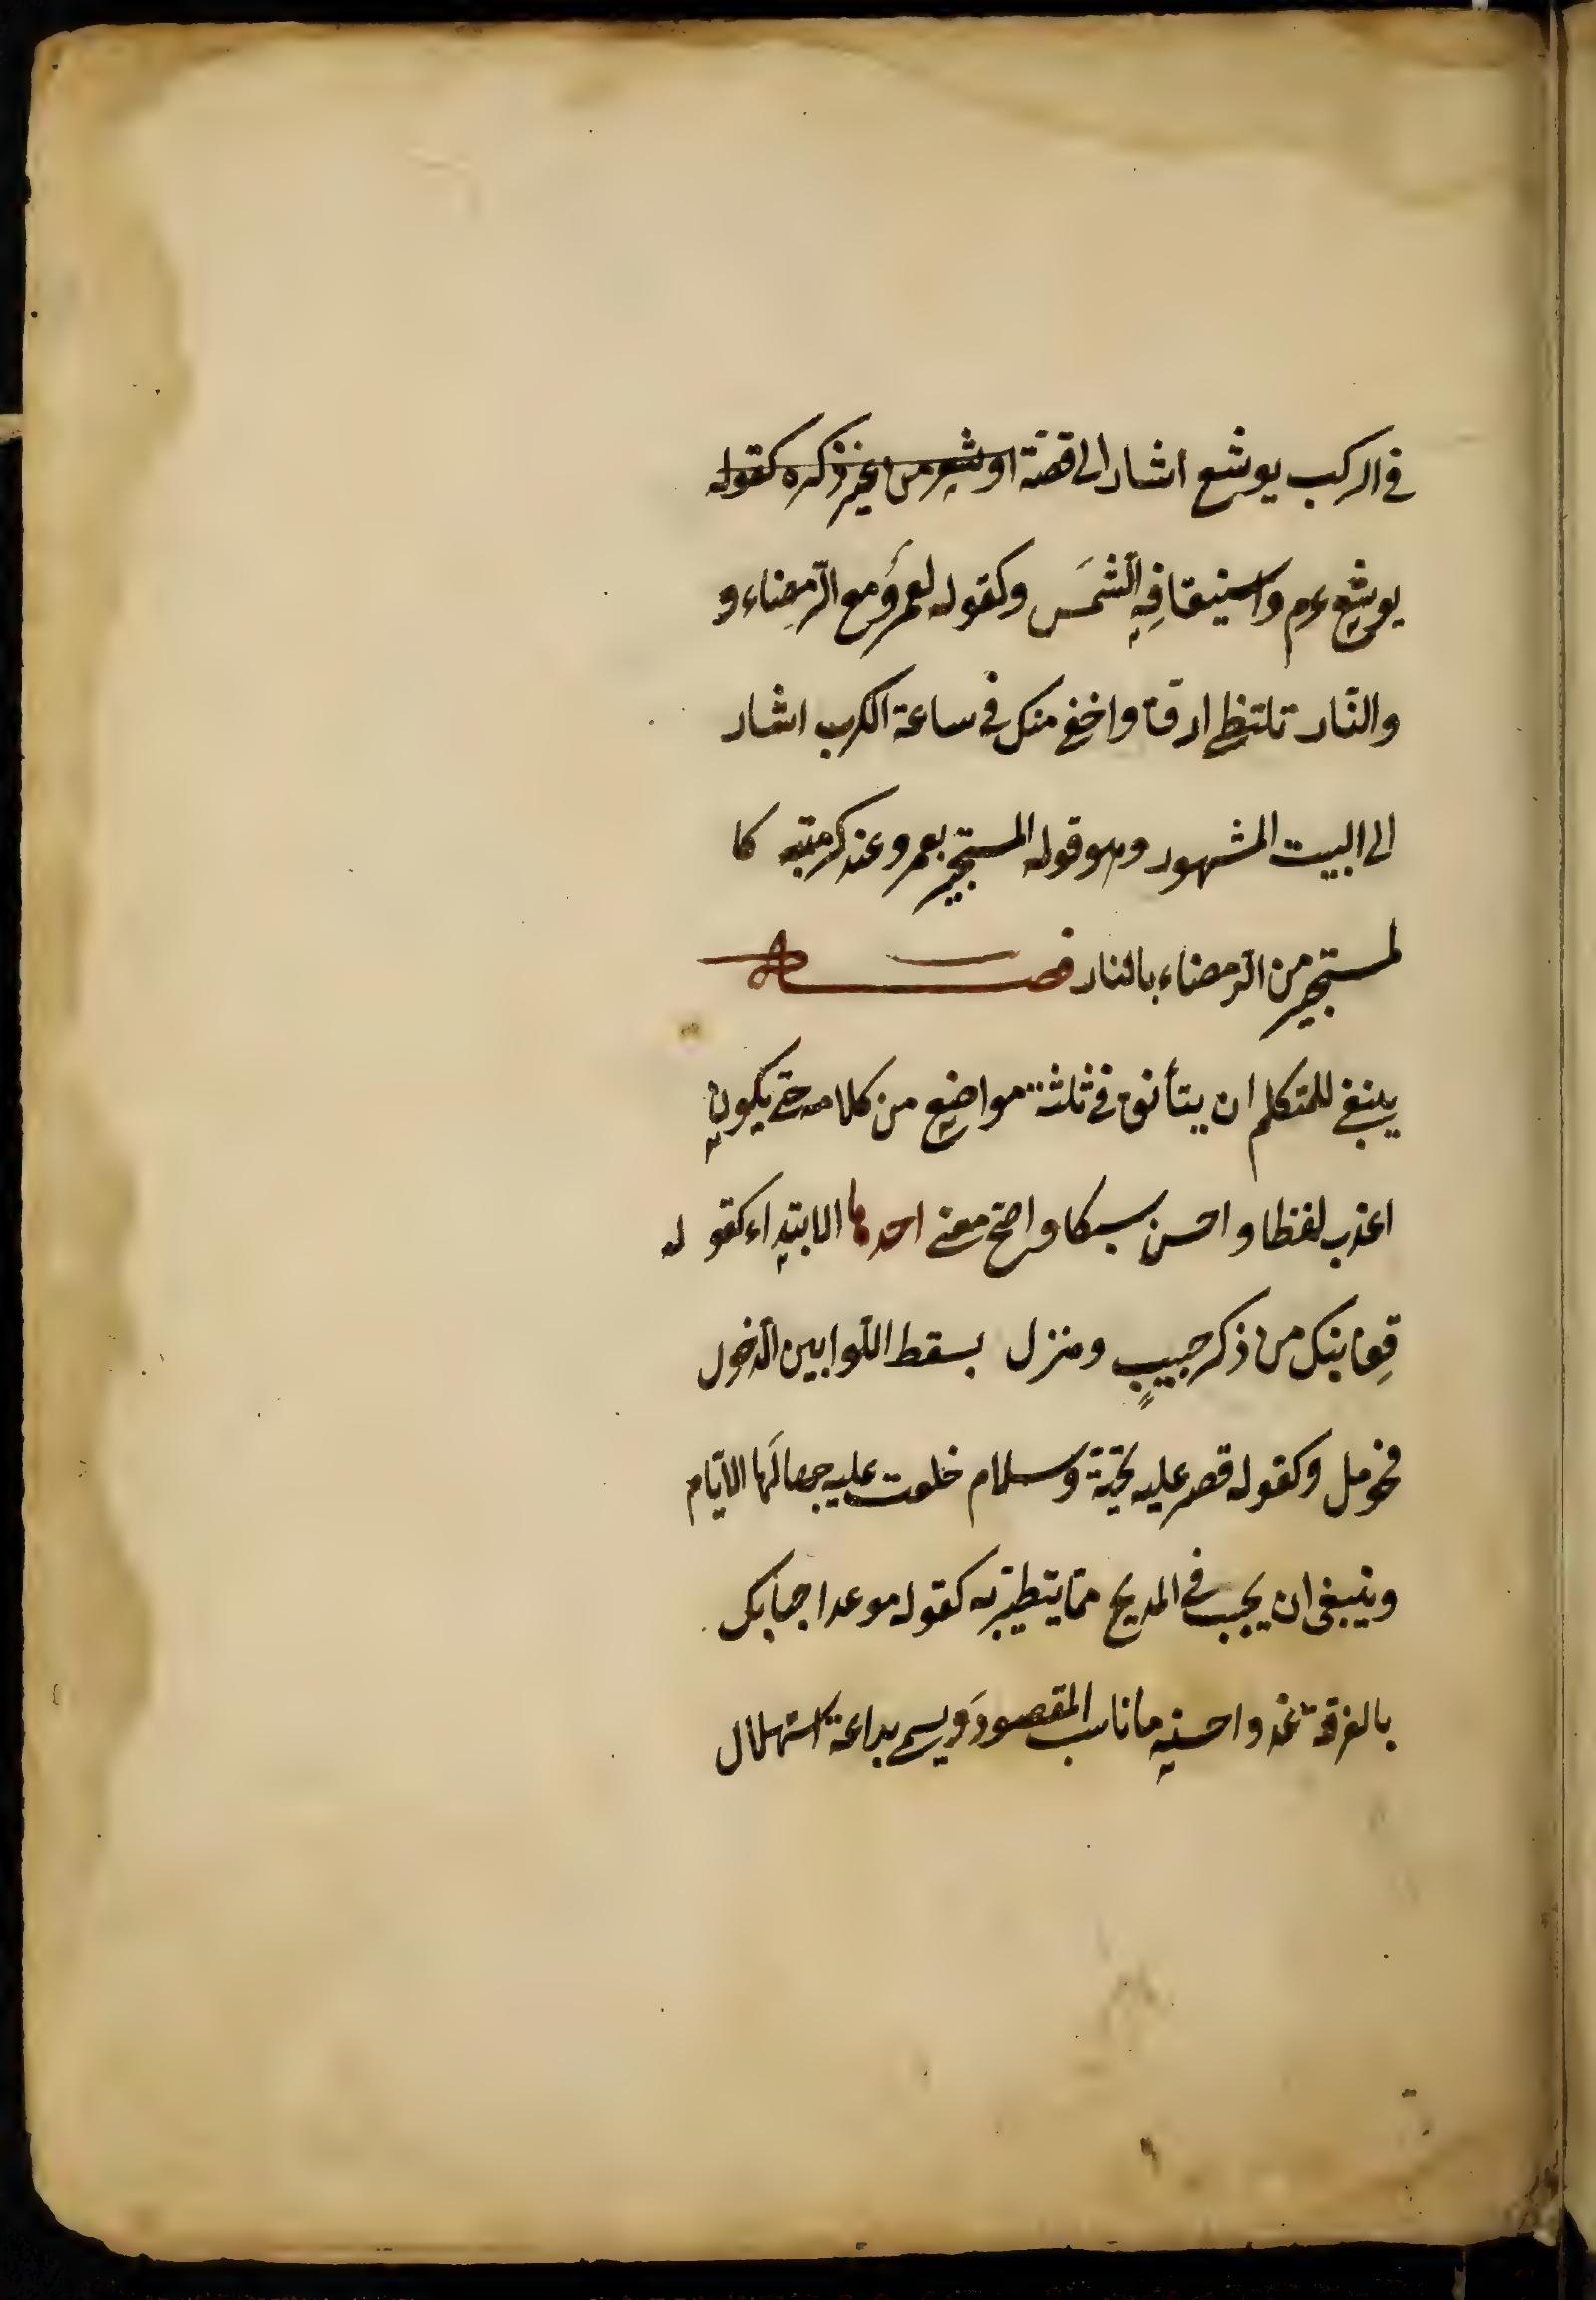 في الركب يوشع اشار الى قصة او شعر من غير ذكره كقوله
يوشع عم واستيقافه الشمس وكقوله لعمرو مع الرمضاء و
والنار تلتظى ارق واخفى منك في ساعة الكرب اشار
الى البيت المشهور وهو قوله المستجير بعمرو عند كربته كا
لمستجير من الرمضاء بالنار فصل
ينبغي للمتكلم ان يتأنق في ثلثة مواضع من كلامه حتى يكون
اعذب لفظا واحسن سبكا واصح معنى احدها الابتداء كقوله
قفا نبك من ذكر حبيب ومنزل بسقط اللوا بين الدخول
فحومل وكقوله قصر عليه تحية وسلام خلعت عليه جمالها الايام
وينبغي ان يجتنب في المديح مما يتطير به كقوله موعد احبابك
بالفرقة غد واحسنه ما ناسب المقصود ويسمى براعة استهلال